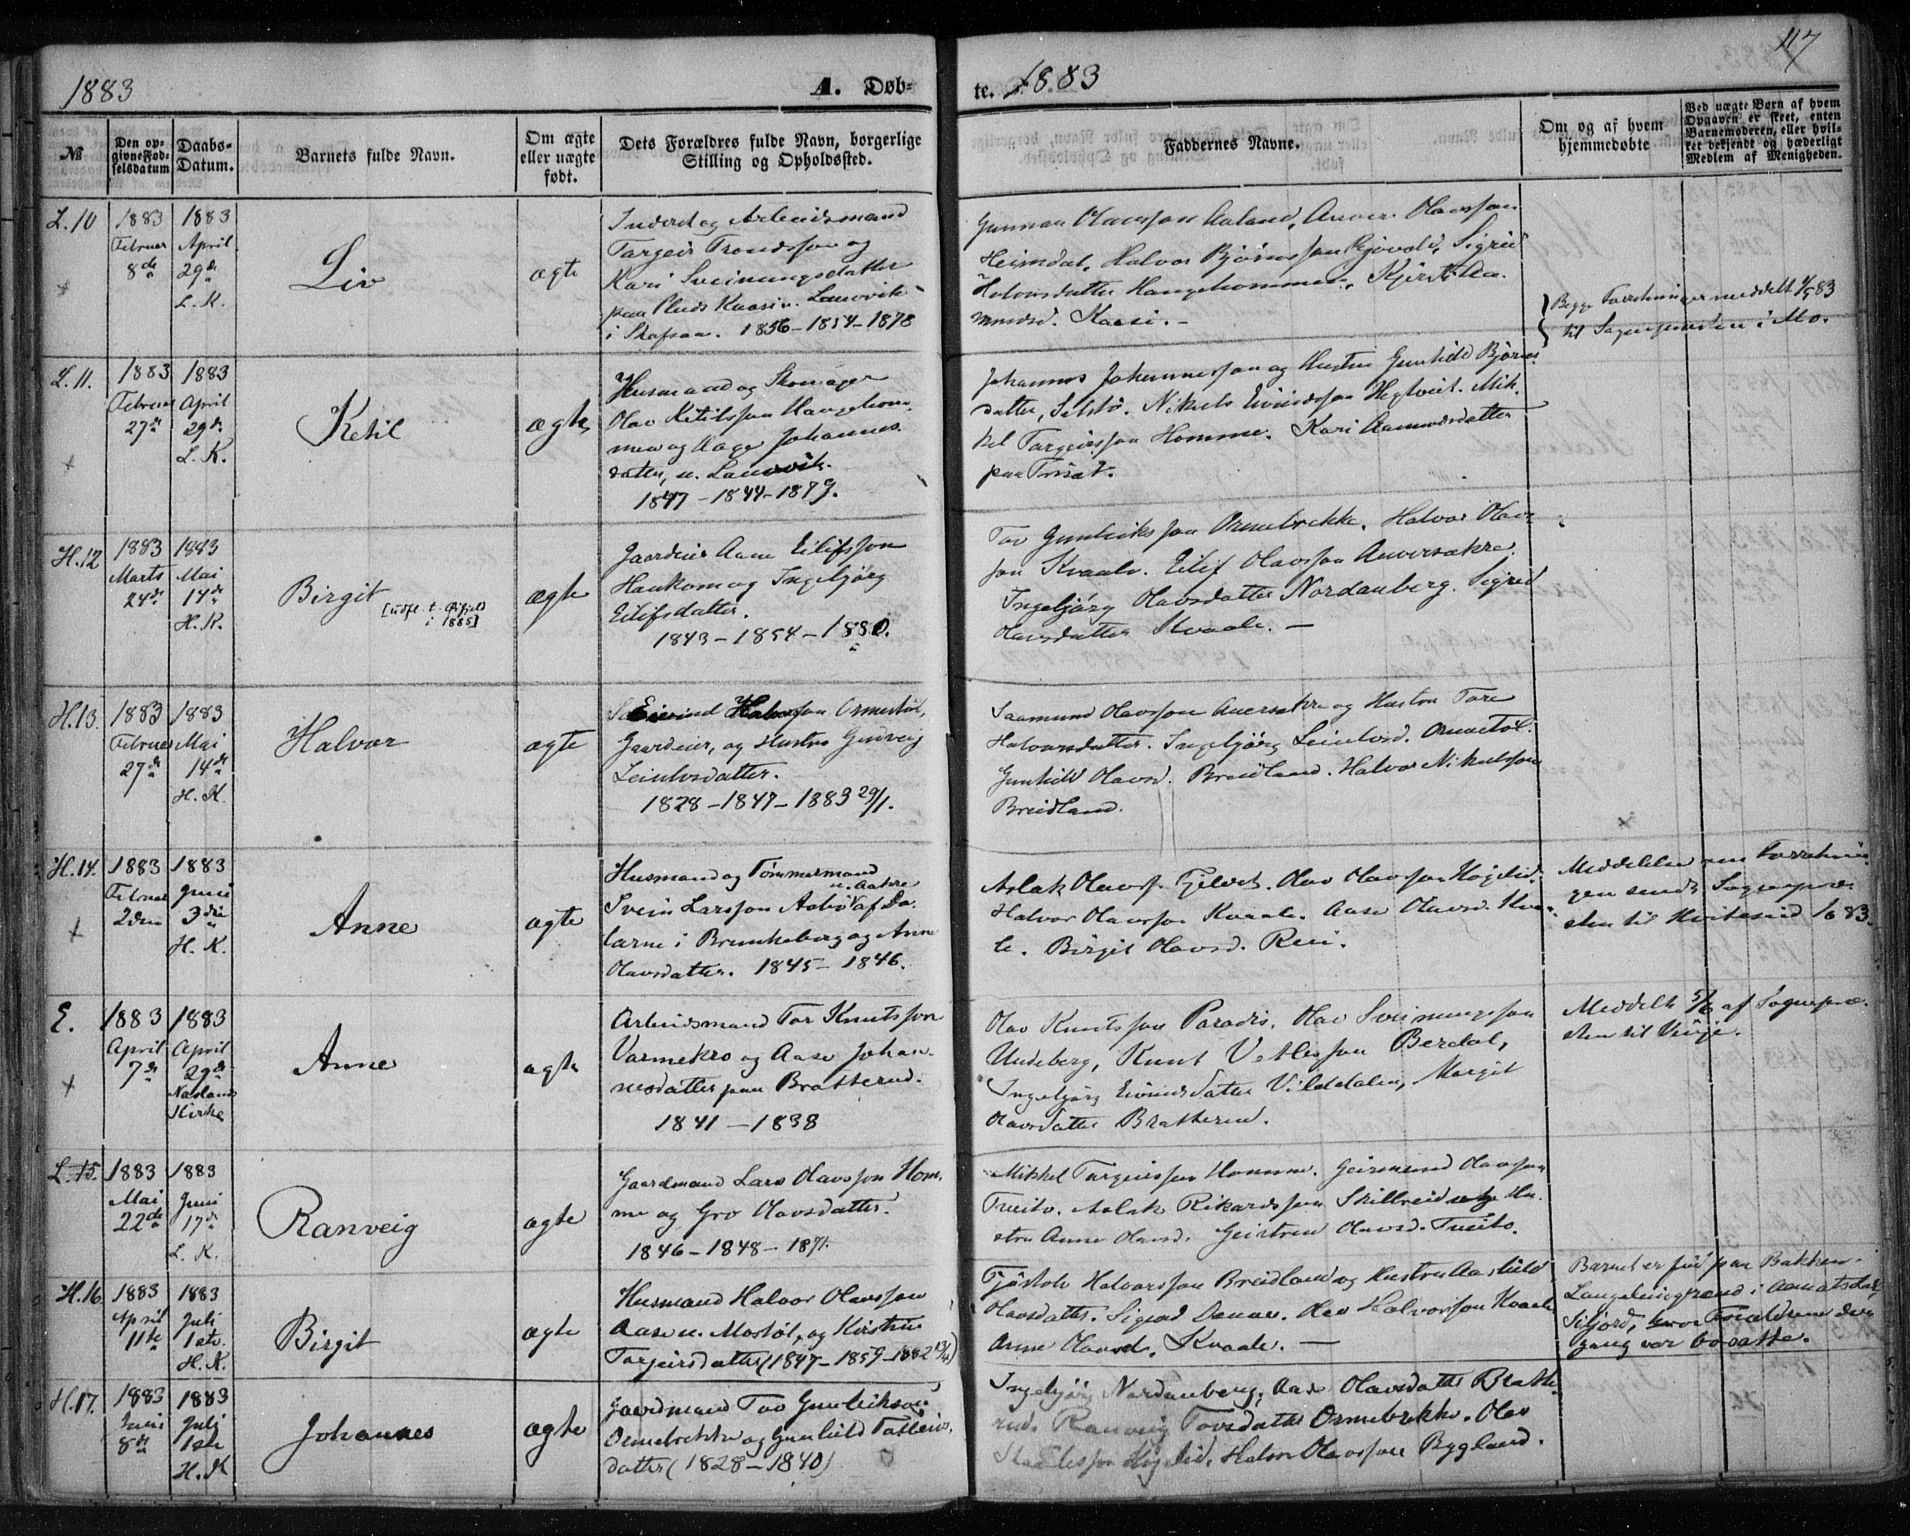 1883
A. Døb-
te. 1883
117
№
Den op-
givne Fød-
selsdatum
Daabs-
Datum.
Barnets fulde Navn.
Om ægte
eller uægte
født.
Dets Forældres fulde Navn, borgerlige
Stilling og Opholdssted.
Faddernes Navne.
Om og af hvem
hjemmedøbte
Ved uægte Børn af hvem
Opgaven er skeet, enten
Barnemoderen, eller hvil-
ket bekjendt og hæderligt
Medlem af Menigheden.
L. 10
1883
Februar
8de
1883
April
29de
L. K.
Liv
ægte
Inderst og Arbeidsmand
Targeir Trondsson og
Kari Sveinungsdatter
paa Kaasi u. Lauvvik
i Skafsaa. 1856-1854-1878
Gunnar Olavsson Aaland, Olavsson
Heimdal, Halvor Bjørnsson Sigrid
Halvorsdatter Haugehommen, Aa-
mundsd. Kaasi.-
Begge meddelt 1/5 83
til Sognepræsten i Mo.
L. 11.
1883
Februar
27de
1883
April
29de
L. K.
Ketil
ægte
Husmand og Skomager
Olav Ketilsson Haugehom-
men og Aage Johannes-
datter, u. Lauvvik.
1847-1844-1879.
Johannes Johannesson og Hustru Gunhild Bjørns-
datter, Selstø. Nikuls Eivindsson Hegtveit. Mik-
kel Targeirsson Homme. Kari Aamundsdatter
paa
H. 12
1883
Marts
24de
1883
Mai
14de
H. K.
Birgit
[udfl. t.
i 1885]
ægte
Gaardeier Aanu Eilifsson
Haukom og Ingebjørg
Eilifsdatter.
1843-1854-1880.
Tov Gunleiksson Ormebrekke. Halvor Olavs-
son Kvaale. Eilif Olavsson Aaversakre.
Ingebjørg Olavsdatter Nordanberg. Sigrid
Olavsdatter Kvaale.-
H. 13.
1883
Februar
27de
1883
Mai
14de
H. K.
Halvor
ægte
Eivind Halvorsson Ormestøl,
Gaardeier, og Hustru Gunveig
Leiulvsdatter.
1828-1847-1883 29/1.
Saamund Olavsson Aaversakre og Hustru Tore
Halvorsdatter. Ingebjørg Leiulvsd. Ormestøl.
Gunhild Olavsd. Breidland. Halvor Nikulsson
Breidland.
H. 14.
1883
Februar
2den
1883
Juni
3die
H. K.
Anne
ægte
Husmand og Tømmermand
u. Aakre
Svein Larsson Aabø af Da-
larne i Brunkeberg og Anne
Olavsdatter. 1845-1846.
Aslak Olavss. Fjelvet. Olav Olavsson Høgelid.
Halvor Olavsson Kvaale. Aase Olavsd. Kvaa-
le. Birgit Olavsd. Rui.
Meddelelse om Forretnin-
gen sendt Sognepræ-
sten til Kvitesseid 83.
E.
1883
April
7de
1883
April
29de
Næsland
Kirke
Anne
ægte
Arbeidsmand Tor Knutsson
Varmekro og Aase Johan-
nesdatter paa Bratterud.
1841-1838
Olav Knutsson Paradis. Olav Sveinungsson
Undeberg, Knut Vetlesson Berdal,
Ingebjørg Eivindsdatter Vilddalen, Margit
Olavsdatter Bratterud.
Meddelt 5/6 af Sognepræ-
sten til Vinje.
L. 15.
1883
Mai
22de
1883
Juni
17de
L. K.
Ranveig
ægte
Gaardmand Lars Olavsson Hom-
me og Gro Olavsdatter.
1846-1848-1871.
Mikkel Targeirsson Homme. Geirmund Olavsson
Tveito. Aslak Rikardsson Skillreid og Hu-
stru Anne Olavsd. Geirtrud Olavsd. Tveito.
H. 16.
1883
April
11te
1883
Juli
1ste
H. K.
Birgit
ægte
Husmand Halvor Olavsson
Aase u. Mostøl, og Kirstine
Targeirsdatter (1847-1859-1882
Tjøstolv Halvorsson Breidland og Hustru Aashild
Olavsdatter. Sigurd Olav Halvorsson Kvaale
Anne Olavsd. Kvaale.-
Barnet er født paa Bakken
Langelinggrænd i Aamotsdal
Siljord, hvor Forældrene den-
gang var bosatte.
H. 17.
1883
Juni
8de
1883
Juli
1ste
H. K
Johannes
ægte
Gaardmand Tov Gunleiksson
Ormebrekke og Gunhild
datter (1828-1840)
Ingebjørg Nordanberg, Aase Olavsdatter Bratte-
rud. Ranveig Tovsdatter Ormebrekke. Olav
Høgelid, Halvor Olavsson Bygland.